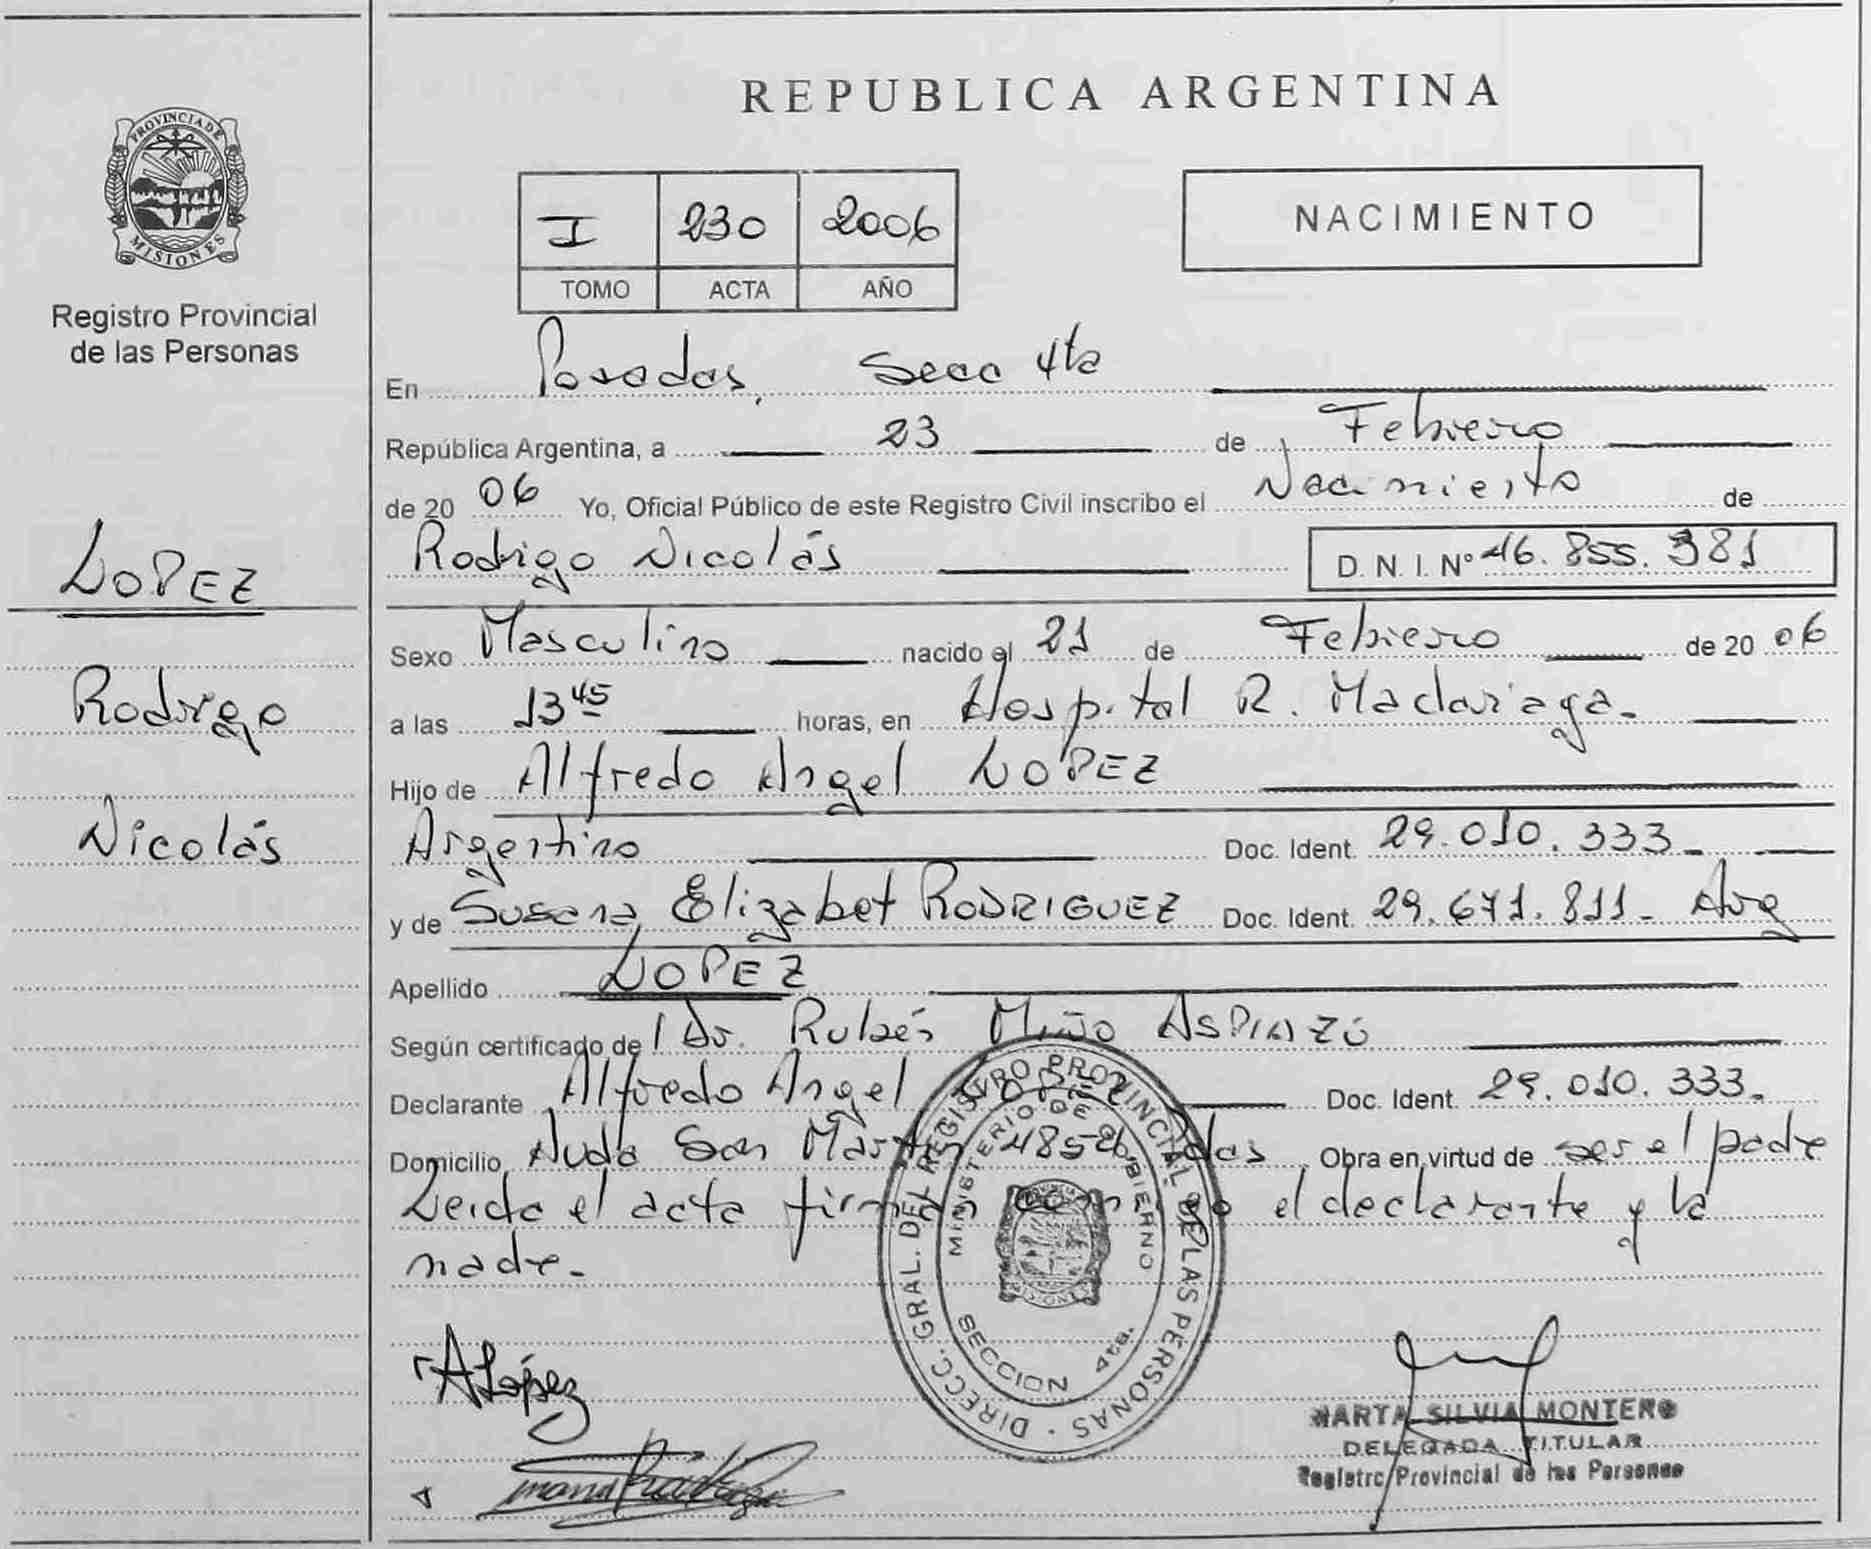 REPUBLICA ARGENTINA
PROVINCIA DE MISIONES
Registro Provincial
de las Personas
I 230 2006
TOMO ACTA AÑO
NACIMIENTO
LOPEZ
Rodrigo
Nicolás
En Posadas, Secc 4ta
República Argentina, a 23 de Febrero
de 2006 Yo, Oficial Público de este Registro Civil inscribo el Nacimiento de
Rodrigo Nicolás D. N. I. Nº 46.855.381
Sexo Masculino nacido el 21 de Febrero de 2006
a las 13 45 horas, en Hospital R. Madariaga.
Hijo de Alfredo Angel LOPEZ
Argentino Doc. Ident. 29.010.333.
y de Susana Elizabet RODRIGUEZ Doc. Ident. 29.671.811. Arg
Apellido LOPEZ
Según certificado de l Dr. Rubén Miño ASPIAZÚ
Declarante Alfredo Angel LOPEZ Doc. Ident. 29.010.333.
Domicilio Avda San Martín 4852 Pdas Obra en virtud de ser el padre
Leida el acta firman conmigo el declarante y la
madre.
DIRECC. GRAL. DEL REGISTRO PROVINCIAL DE LAS PERSONAS
MINISTERIO DE GOBIERNO
SECCION 4ta.
ALópez
MARTA SILVIA MONTERO
DELEGADA TITULAR
Registro Provincial de las Personas